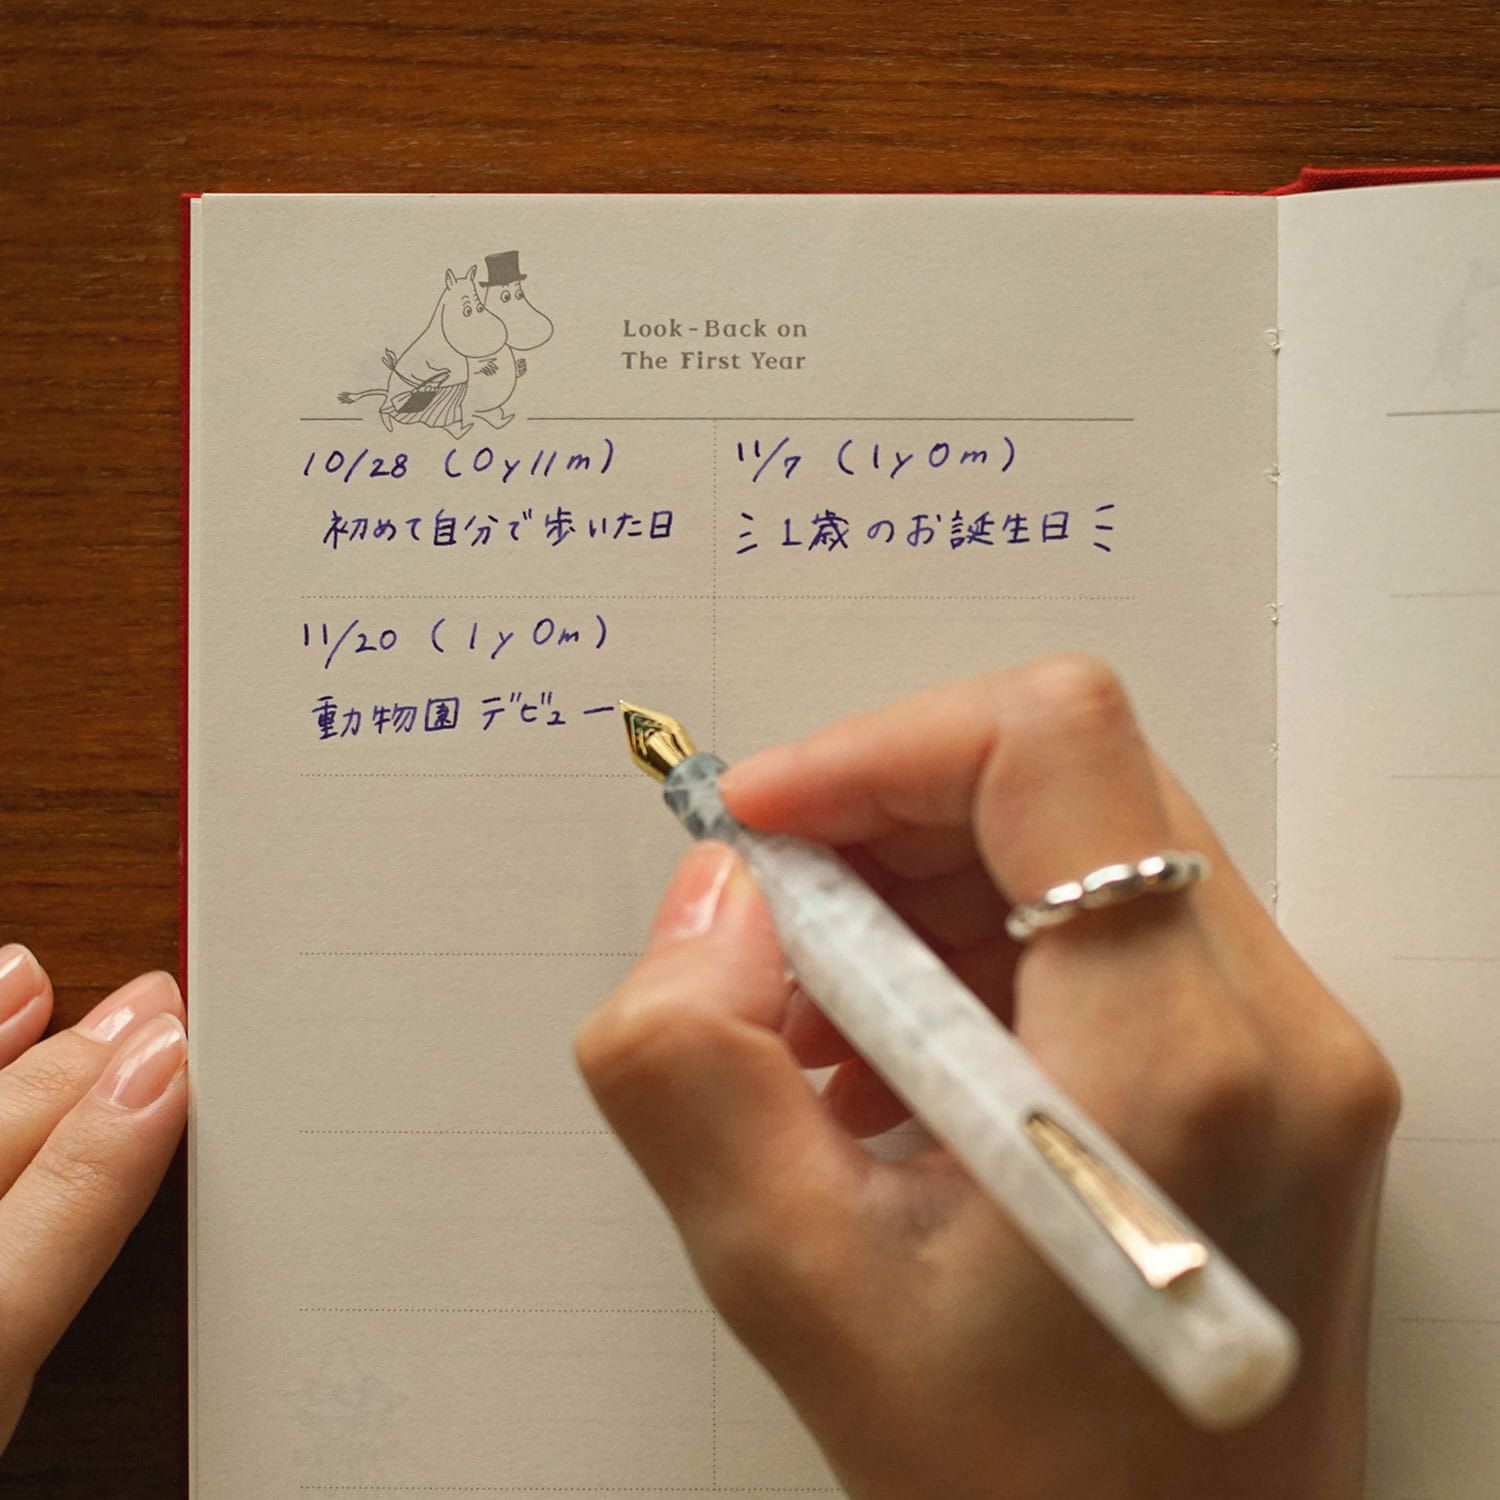 Look-Back on
The First Year
10/28 (0y11m)
初めて自分で歩いた日
11/7 (1y0m)
1歳のお誕生日
11/20 (1y0m)
動物園デビュー